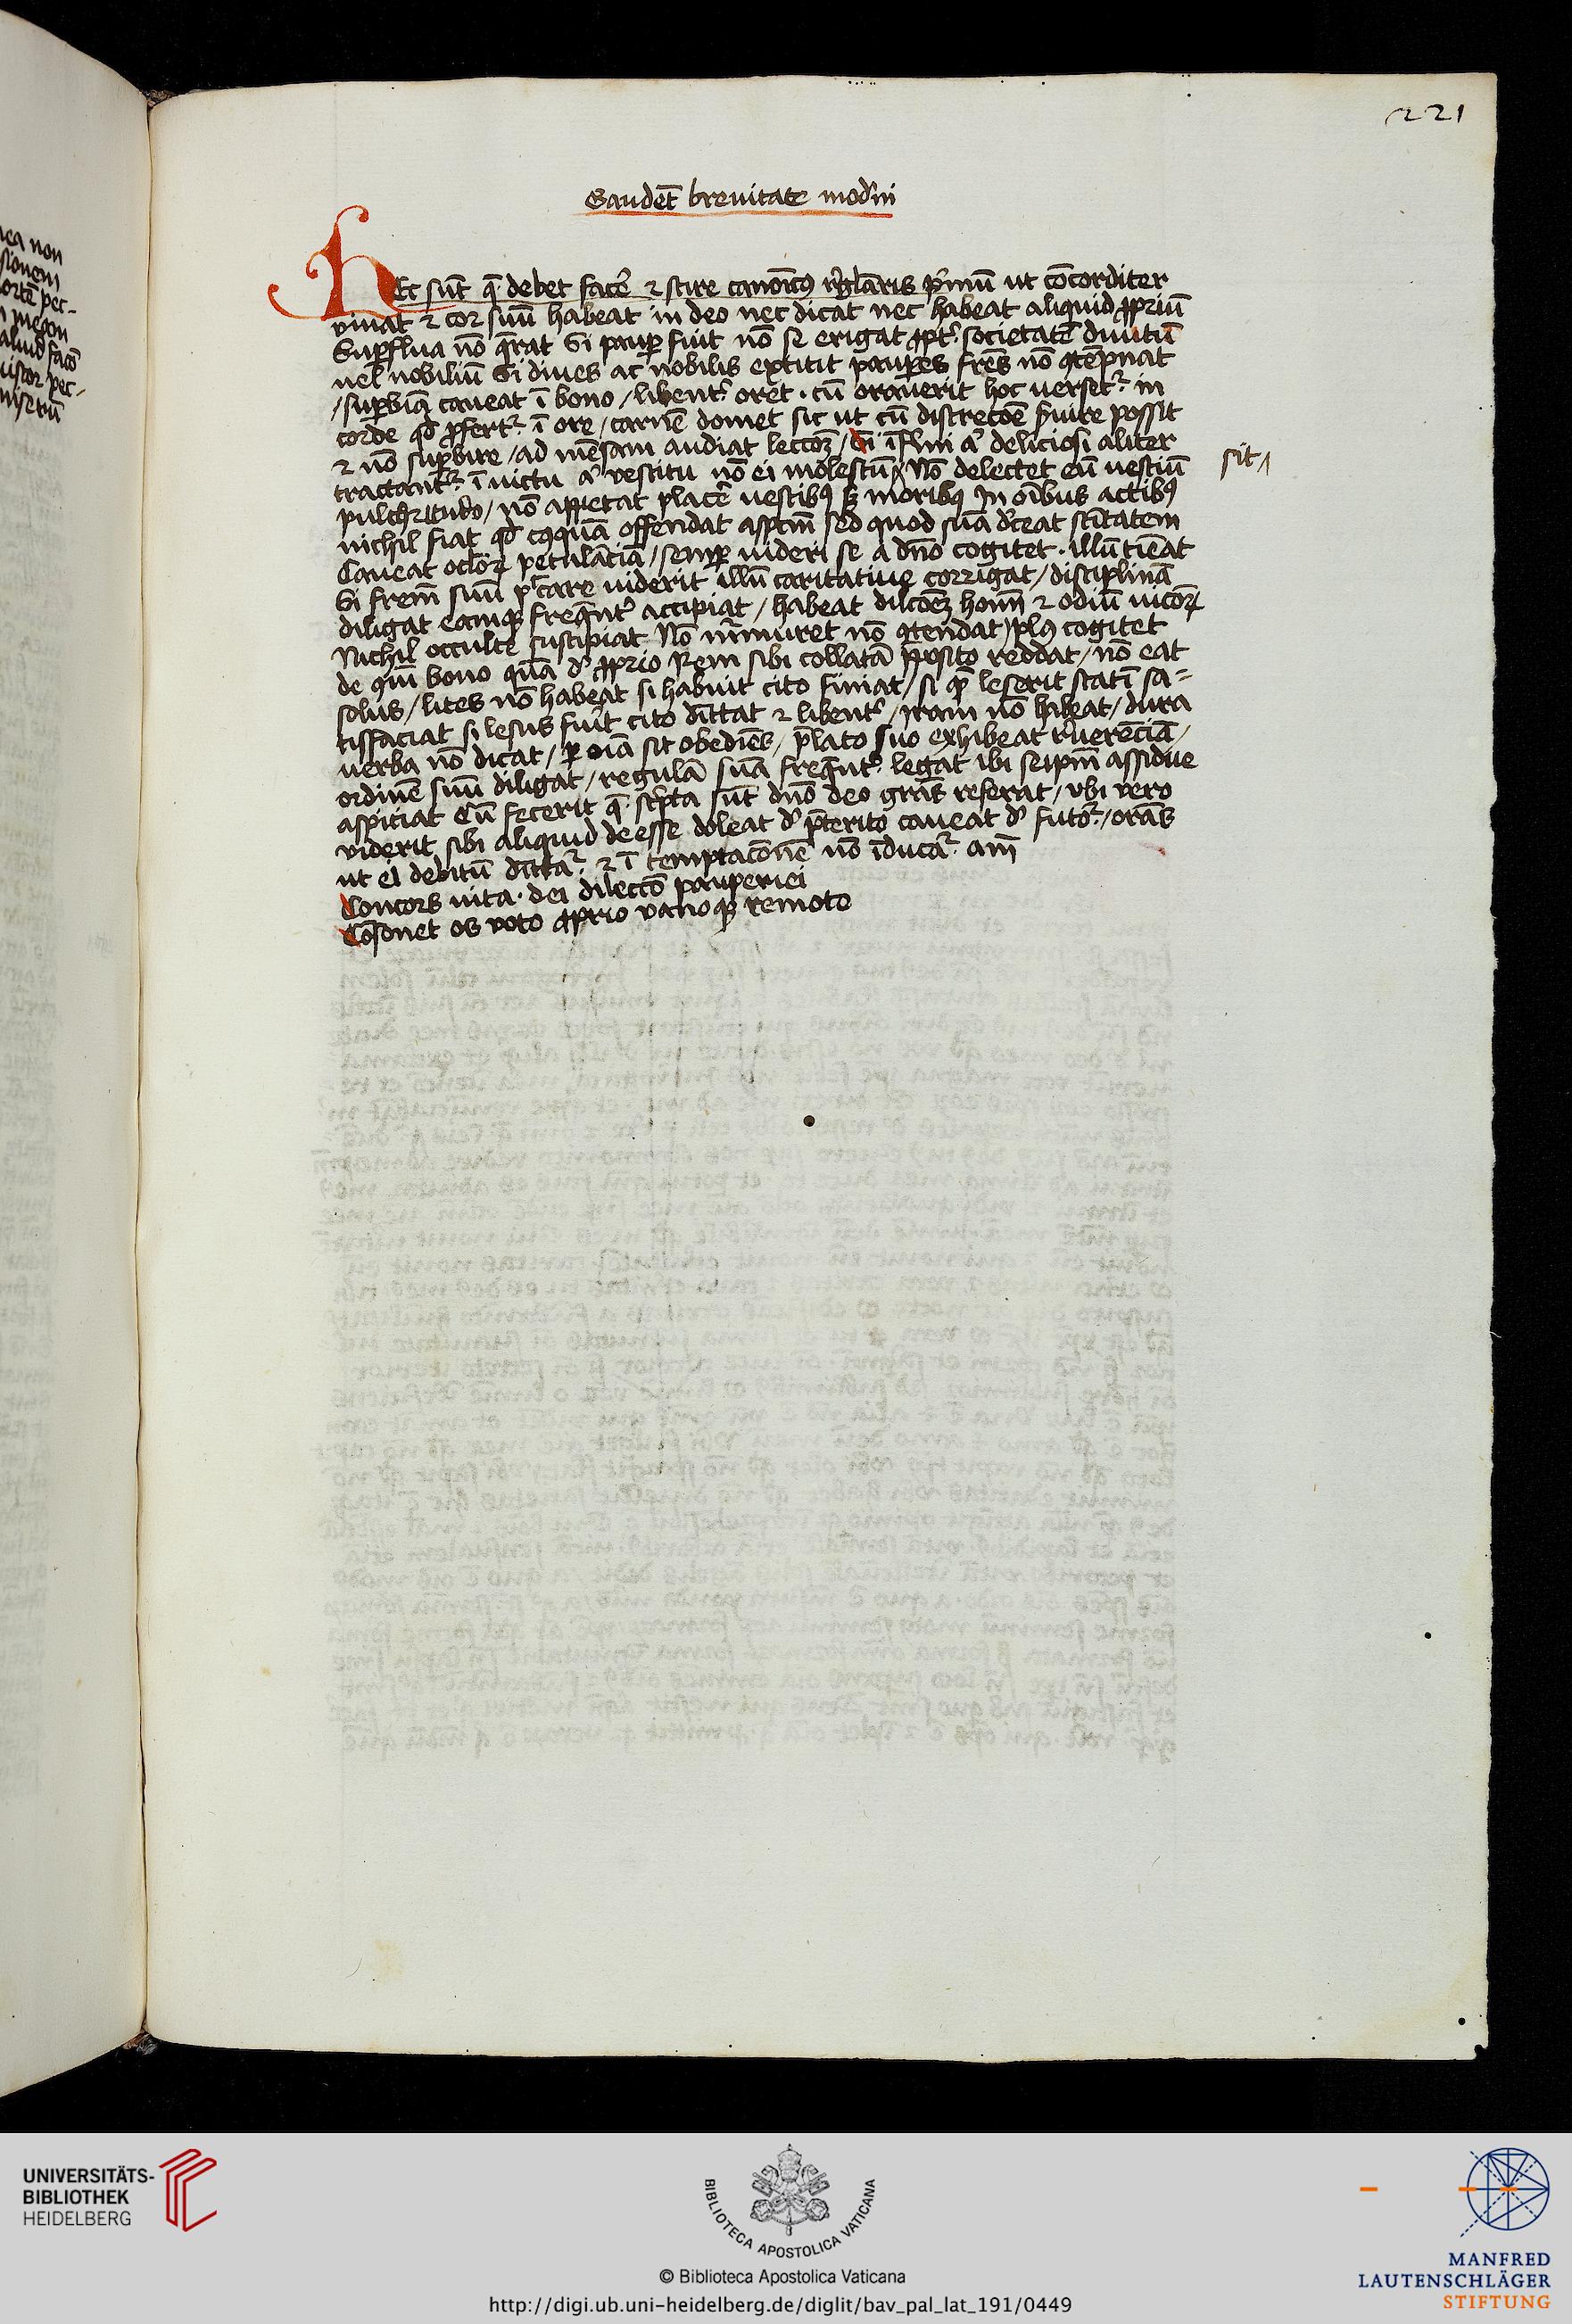 221
Gaudēt breuitate mod'ni
HEc sūt q̄ debet facē ⁊ scire canoīcꝰ r'glāris p'mū ut cōcorditer
viuat ⁊ cor suū habeat in deo nec dicat nec habeat aliquid ꝓpriū
Suꝑflua nō q̄rat Si pauꝑ fuit nō se erigat ꝓpt' societatē diuitū
uel nobiliū Si diues ac nobilis extitit pauꝑes frēs nō ꝯtēpnat
/suꝑbiā caueat ī bono /libent' oret · cū orauerit hoc uerset' in
corde qđ ꝓfert' ī ore /carnē domet sic ut cū discrecōe s'uire possit
⁊ nō suꝑbire /ad mēsam audiat leccōꝫ /dū īfirmi a' deliciosi aliter
tractant' ī uictu a' vestitu nō ei molestū Nō delectet eū uestiū
sit
pulchritudo / nō appetat placē uestibꝰ sꝫ moribꝰ In oībus actibꝰ
nichil fiat qđ cuiquā offendat aspcm̄ sed quod suā d'ceat scītatem
Caueat oclōꝝ petulāciā /semꝑ uideri se a dn̄o cogitet · illū tiēat
Si frem̄ suū p'care uiderit illū caritatiue corrigat /disciplinā
diligat eamqꝫ freq̄nt' accipiat / habeat dilcōeꝫ hoīm ⁊ odiū uicōꝝ
Nichil occulte suscipiat Nō m'muret nō ꝯtendat plꝰ cogitet
de ꝯui bono quā d' ꝓprio Rem sibi collatā p̄posito reddat / nō eat
solus / lites nō habeat si habuit cito finiat / si qm̄ leserit statī sa-
tisfaciat si lesus fuit cito dīttat ⁊ libent' /iram nō habeat /dura
uerba nō dicat / ꝑ oīa sit obediēs / p̄lato suo exhibeat r'uerēciā /
ordinē suū diligat /regulā suā freq̄nt' legat ibi seipm̄ assidue
aspiciat Cū fecerit q̄ sc'pta sūt dn̄o deo grās referat / vbi vero
viderit sibi aliquid deesse doleat d' p̄terito caueat d' futō' /orās
ut ei debitū dītta' ⁊ ī temptacōnē nō īduca' am̄
Concors uita · dei dileccō pauperiei
Cōsonet os voto ꝓprio vanoqꝫ remoto
UNIVERSITÄTS-
BIBLIOTHEK
HEIDELBERG
BIBLIOTECA APOSTOLICA VATICANA
© Biblioteca Apostolica Vaticana
http://digi.ub.uni-heidelberg.de/diglit/bav_pal_lat_191/0449
MANFRED
LAUTENSCHLÄGER
STIFTUNG